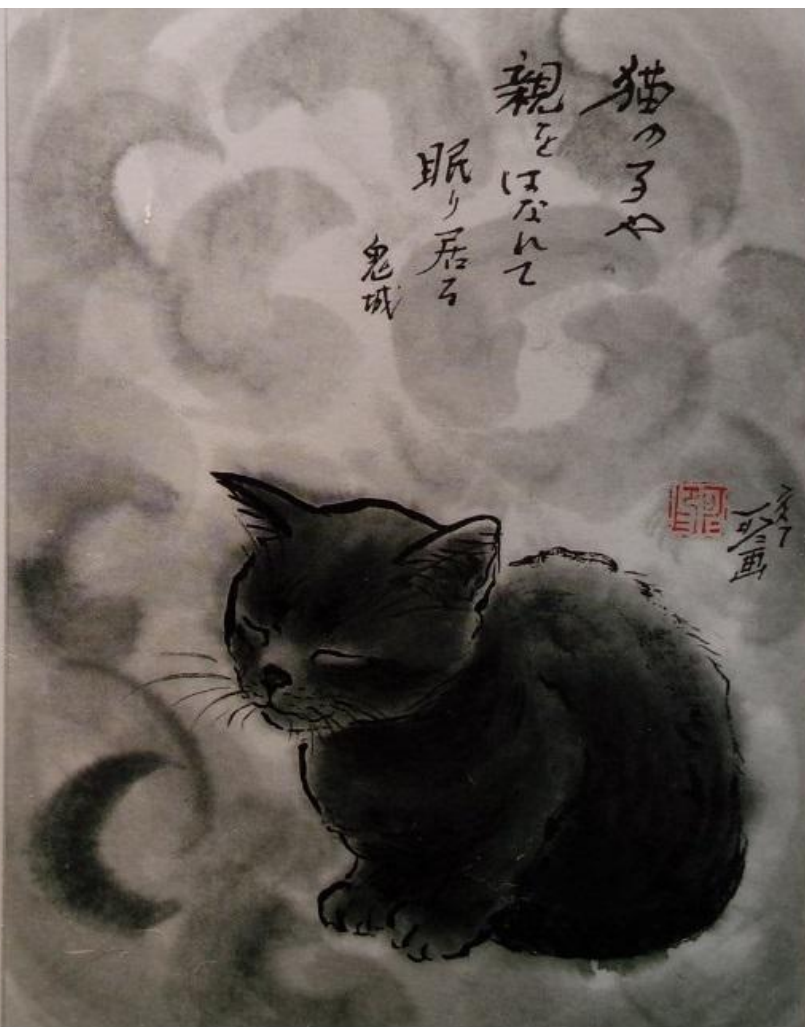 猫の子や
親をはなれて
眠り居る
鬼城